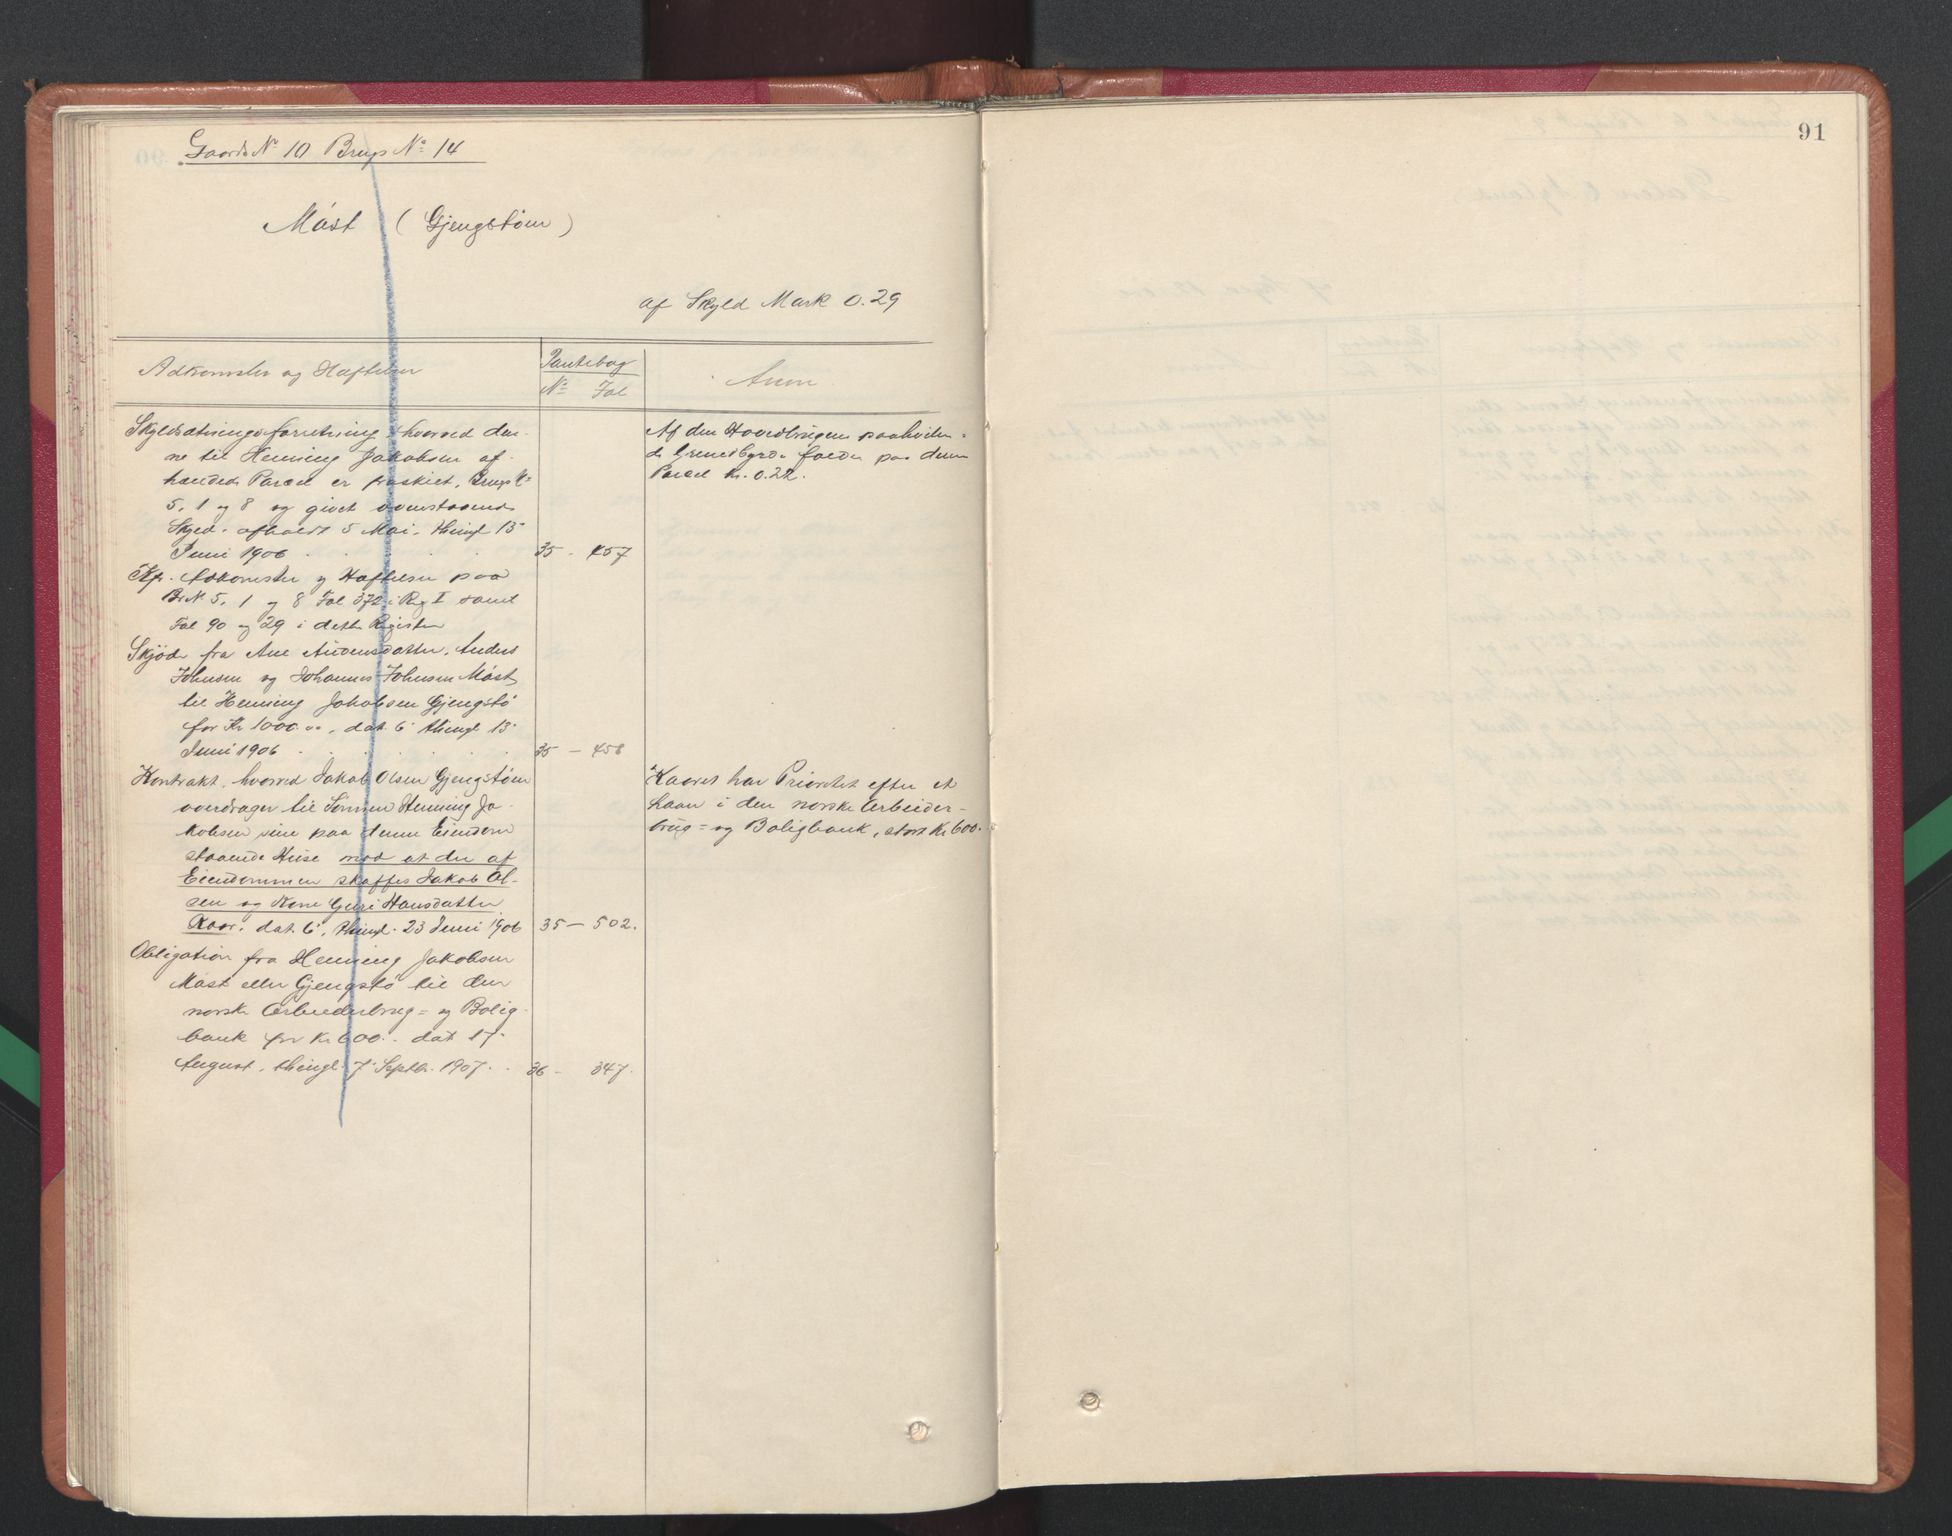 Gaards No 10 Brugs No 14
Måst (Gjengstøm)
af Skyld Mark 0.29
Adkomster og Hæftelser
Pantebog
No Fol
Anm
Skyldsætningsforretning, hvorved den-
ne til Henning Jakobsen af-
hændede Parcel er fraskilt, Brugs No
5, 1 og 8 og givet ovenstaaende
Skyld. afholdt 5 Mai, thingl 13
Juni 1906 35 - 457
Af den Hovedbrugene paahvilen-
de Grundbyrde falder paa denne
Parcel Kr. 0.22.
Kfr. Adkomster og Hæftelser paa
Br No 5, 1 og 8 Fol 372 i Reg I samt
Fol 90 og 29 i dette Register
Skjøde fra Ane Andersdatter, Anders
Johnsen og Johannes Johnsen Måst
til Henning Jakobsen Gjengstø
for Kr 1000.00, dat. 6' thingl 13'
Juni 1906 35 - 458
Kontrakt, hvorved Jakob Olsen Gjengstøm
overdrager til Sønnen Henning Ja-
kobsen sine paa denne Eiendom
staaende Huse mod at der af
Eiendommen skaffes Jakob Ol-
sen og Kone Guri Hansdatter
Kaar, dat. 6', thingl. 23 Juni 1906 35 - 502.
Kaaret har Prioritet efter et
Laan i den norske Arbeider-
brug- og Boligbank, stort Kr 600.-
Obligation fra Henning Jakobsen
Måst eller Gjengstø til den
norske Arbeiderbrug- og Bolig-
bank for Kr 600.- dat 17'
August, thingl. 7' Septbr. 1907. 36 - 347.
91